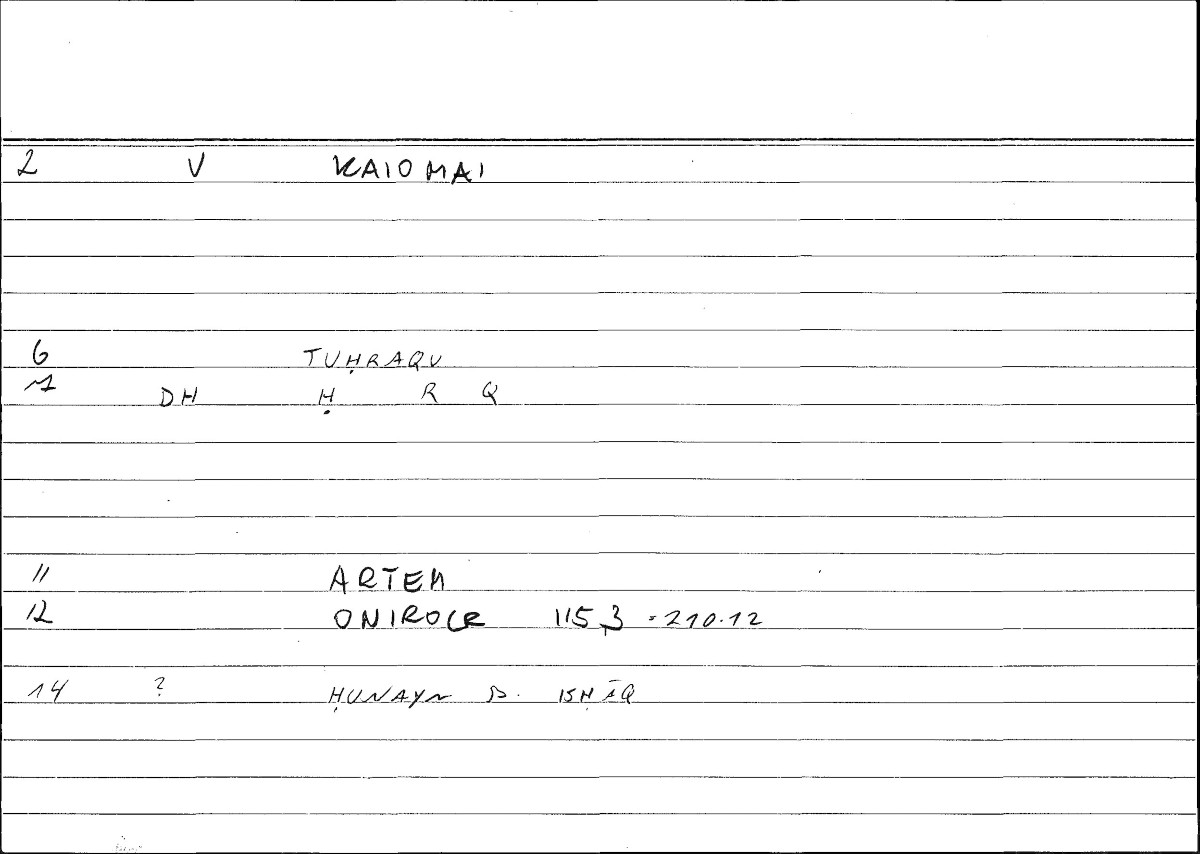 2 V KAIOMAI
6 TUḤRAQU
7 DH Ḥ R Q
11 ARTEM
12 ONIROCR 115,3 = 210.12
14 ? ḤUNAYN B. ISḤĀQ